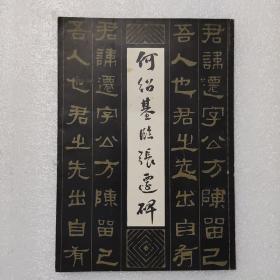 君諱遷字公方陳留己
吾人也君之先出自有
何绍基临張遷碑
君諱遷字公方陳留己
吾人也君之先出自有